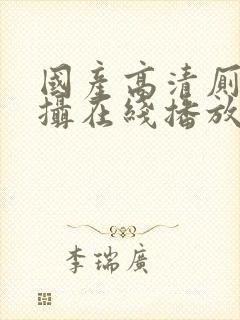 國產高清廁
攝在綫播放
李瑞廣